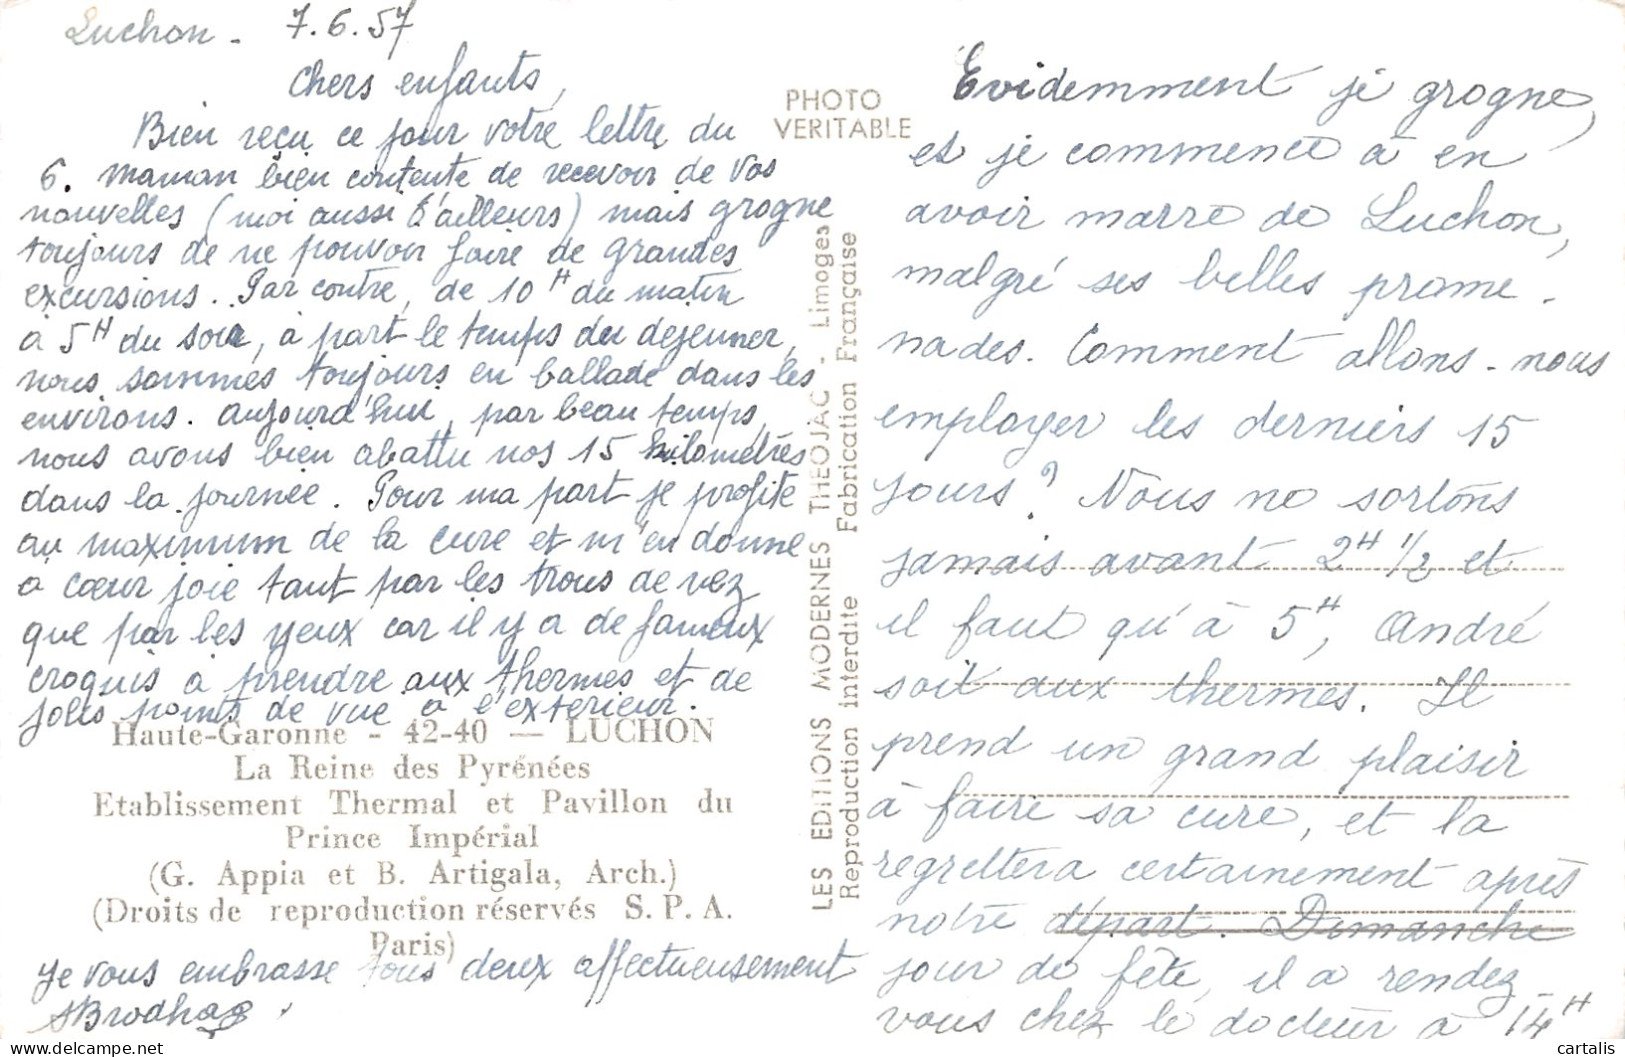 Luchon - 7.6.57
Chers enfants,
Bien reçu ce jour votre lettre du
6. Maman bien contente de recevoir de vos
nouvelles (moi aussi d'ailleurs) mais grogne
toujours de ne pouvoir faire de grandes
excursions. Par contre, de 10 H du matin
à 5 H du soir, à part le temps du dejeuner,
nous sommes toujours en ballade dans les
environs. aujourd'hui, par beau temps,
nous avons bien abattu nos 15 kilomètres
dans la journée. Pour ma part je profite
au maximum de la cure et m'en donne
à cœur joie tant par les trous de nez
que par les yeux car il y a de fameux
croquis à prendre aux thermes et de
jolis points de vue à l'extérieur.
Haute-Garonne - 42-40 — LUCHON
La Reine des Pyrénées
Etablissement Thermal et Pavillon du
Prince Impérial
(G. Appia et B. Artigala, Arch.)
(Droits de reproduction réservés S. P. A.
Paris)
Je vous embrasse tous deux affectueusement
PHOTO
VERITABLE
LES EDITIONS MODERNES THEOJAC - Limoges
Reproduction interdite Fabrication Française
Evidemment je grogne,
et je commence à en
avoir marre de Luchon,
malgré ses belles prome-
nades. Comment allons-nous
employer les derniers 15
jours? Nous ne sortons
jamais avant 2H 1/2 et
il faut qu'à 5H, André
soit aux thermes. Il
prend un grand plaisir
à faire sa cure, et la
regrettera certainement après
notre départ. Dimanche
jour de fête, il a rendez-
vous chez le docteur à 14H
cartalis